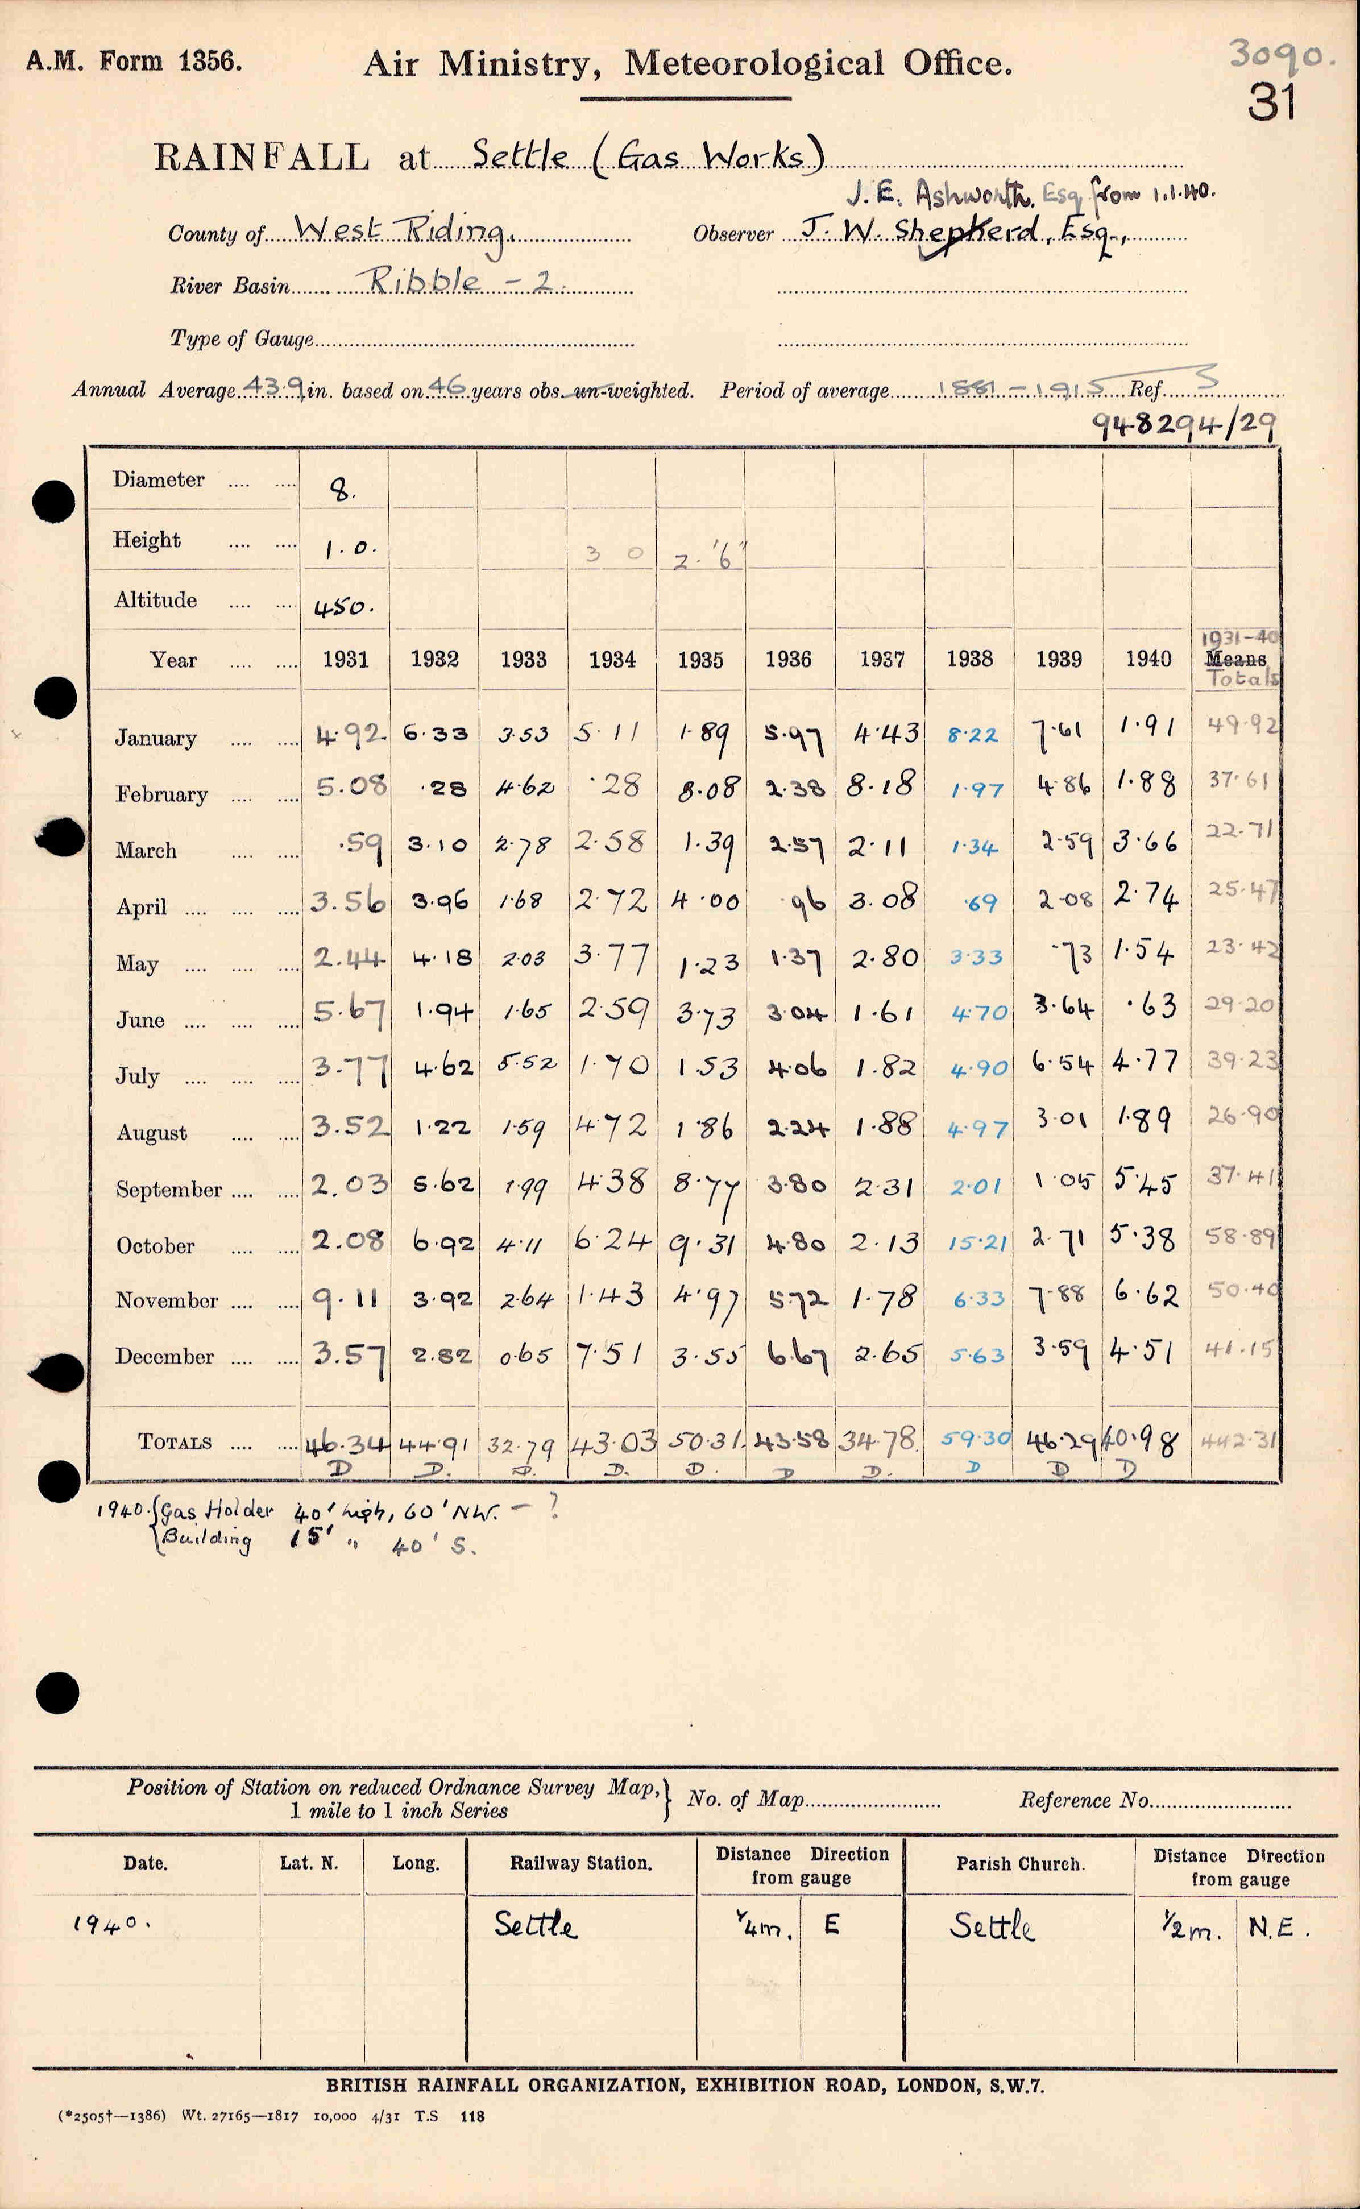 A.M. Form 1356.
Air Ministry, Meteorological Office.
3090.
31
RAINFALL at Settle (Gas Works)
J. E. Ashworth. Esq from 1.1.40.
County of West Riding. Observer J. W. Shepherd, Esq.,
River Basin Ribble - 2.
Type of Gauge
Annual Average 43.9 in. based on 46 years obs. un-weighted. Period of average 1881-1915 Ref. 5
948294/29
Diameter .... .... 8.
Height .... .... 1.0. 3 0 2.'6"
Altitude .... .... 450.
1931-40
Year .... .... 1931 1932 1933 1934 1935 1936 1937 1938 1939 1940 Means
Totals
January .... .... 4.92 6.33 3.53 5.11 1.89 5.97 4.43 8.22 7.61 1.91 49.92
February .... .... 5.08 .28 4.62 .28 8.08 2.38 8.18 1.97 4.86 1.88 37.61
March .... .... .59 3.10 2.78 2.58 1.39 2.57 2.11 1.34 2.59 3.66 22.71
April .... .... .... 3.56 3.96 1.68 2.72 4.00 .96 3.08 .69 2.08 2.74 25.47
May .... .... .... 2.44 4.18 2.03 3.77 1.23 1.37 2.80 3.33 .73 1.54 23.42
June .... .... .... 5.67 1.94 1.65 2.59 3.73 3.04 1.61 4.70 3.64 .63 29.20
July .... .... .... 3.77 4.62 5.52 1.70 1.53 4.06 1.82 4.90 6.54 4.77 39.23
August .... .... 3.52 1.22 1.59 4.72 1.86 2.24 1.88 4.97 3.01 1.89 26.90
September .... .... 2.03 5.62 1.99 4.38 8.77 3.80 2.31 2.01 1.05 5.45 37.41
October .... .... 2.08 6.92 4.11 6.24 9.31 4.80 2.13 15.21 2.71 5.38 58.89
November .... .... 9.11 3.92 2.64 1.43 4.97 5.72 1.78 6.33 7.88 6.62 50.40
December .... .... 3.57 2.82 0.65 7.51 3.55 6.67 2.65 5.63 3.59 4.51 41.15
TOTALS .... .... 46.34 44.91 32.79 43.03 50.31 43.58 34.78 59.30 46.29 40.98 442.31
D D. D. D. D. D D. D D D
1940. {Gas Holder 40' high, 60' NW. - ?
{Building 15' " 40' S.
Position of Station on reduced Ordnance Survey Map,} No. of Map Reference No.
1 mile to 1 inch Series
Date. Lat. N. Long. Railway Station. Distance Direction from gauge Parish Church. Distance Direction from gauge
1940. Settle 1/4m. E Settle 1/2m. N.E.
BRITISH RAINFALL ORGANIZATION, EXHIBITION ROAD, LONDON, S.W.7.
(*2505†—1386) Wt. 27165—1817 10,000 4/31 T.S 118